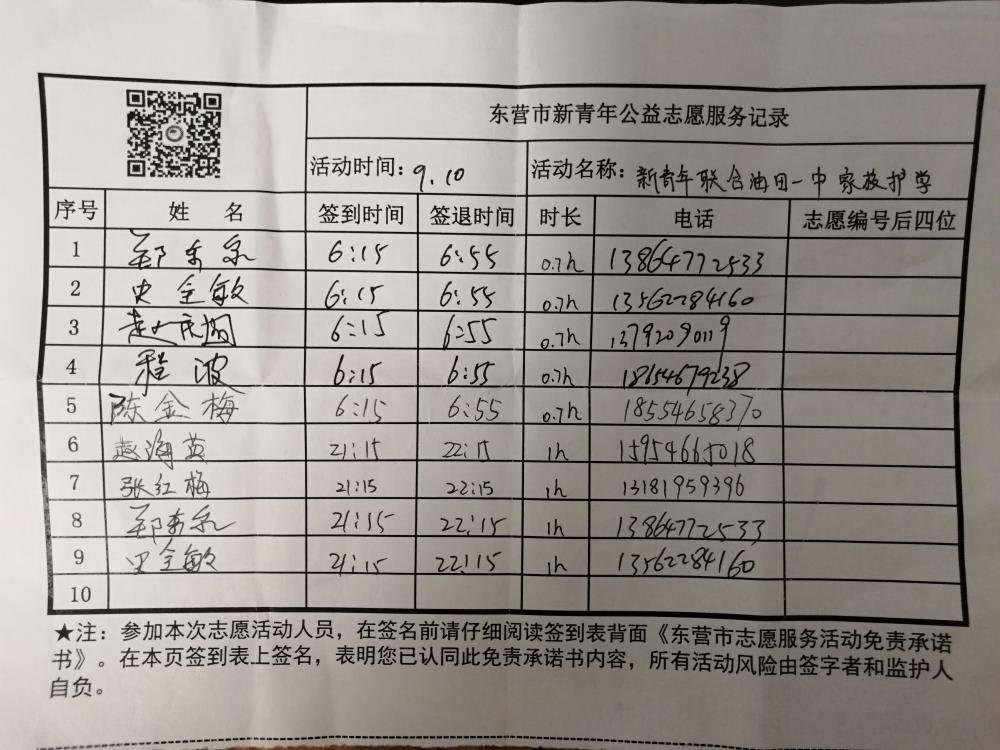 东营市新青年公益志愿服务记录
活动时间：9.10 活动名称：新青年联合油田一中家校护学
序号 姓 名 签到时间 签退时间 时长 电话 志愿编号后四位
1 郑东泉 6:15 6:55 0.7h 13864772533
2 史全敏 6:15 6:55 0.7h 13562284160
3 6:15 6:55 0.7h 13792090119
4 程波 6:15 6:55 0.7h 18654679238
5 陈金梅 6:15 6:55 0.7h 18554658370
6 赵海英 21:15 22:15 1h 15954665018
7 张红梅 21:15 22:15 1h 13181959396
8 郑东泉 21:15 22:15 1h 13864772533
9 史全敏 21:15 22:15 1h 13562284160
10
★注：参加本次志愿活动人员，在签名前请仔细阅读签到表背面《东营市志愿服务活动免责承诺
书》。在本页签到表上签名，表明您已认同此免责承诺书内容，所有活动风险由签字者和监护人
自负。